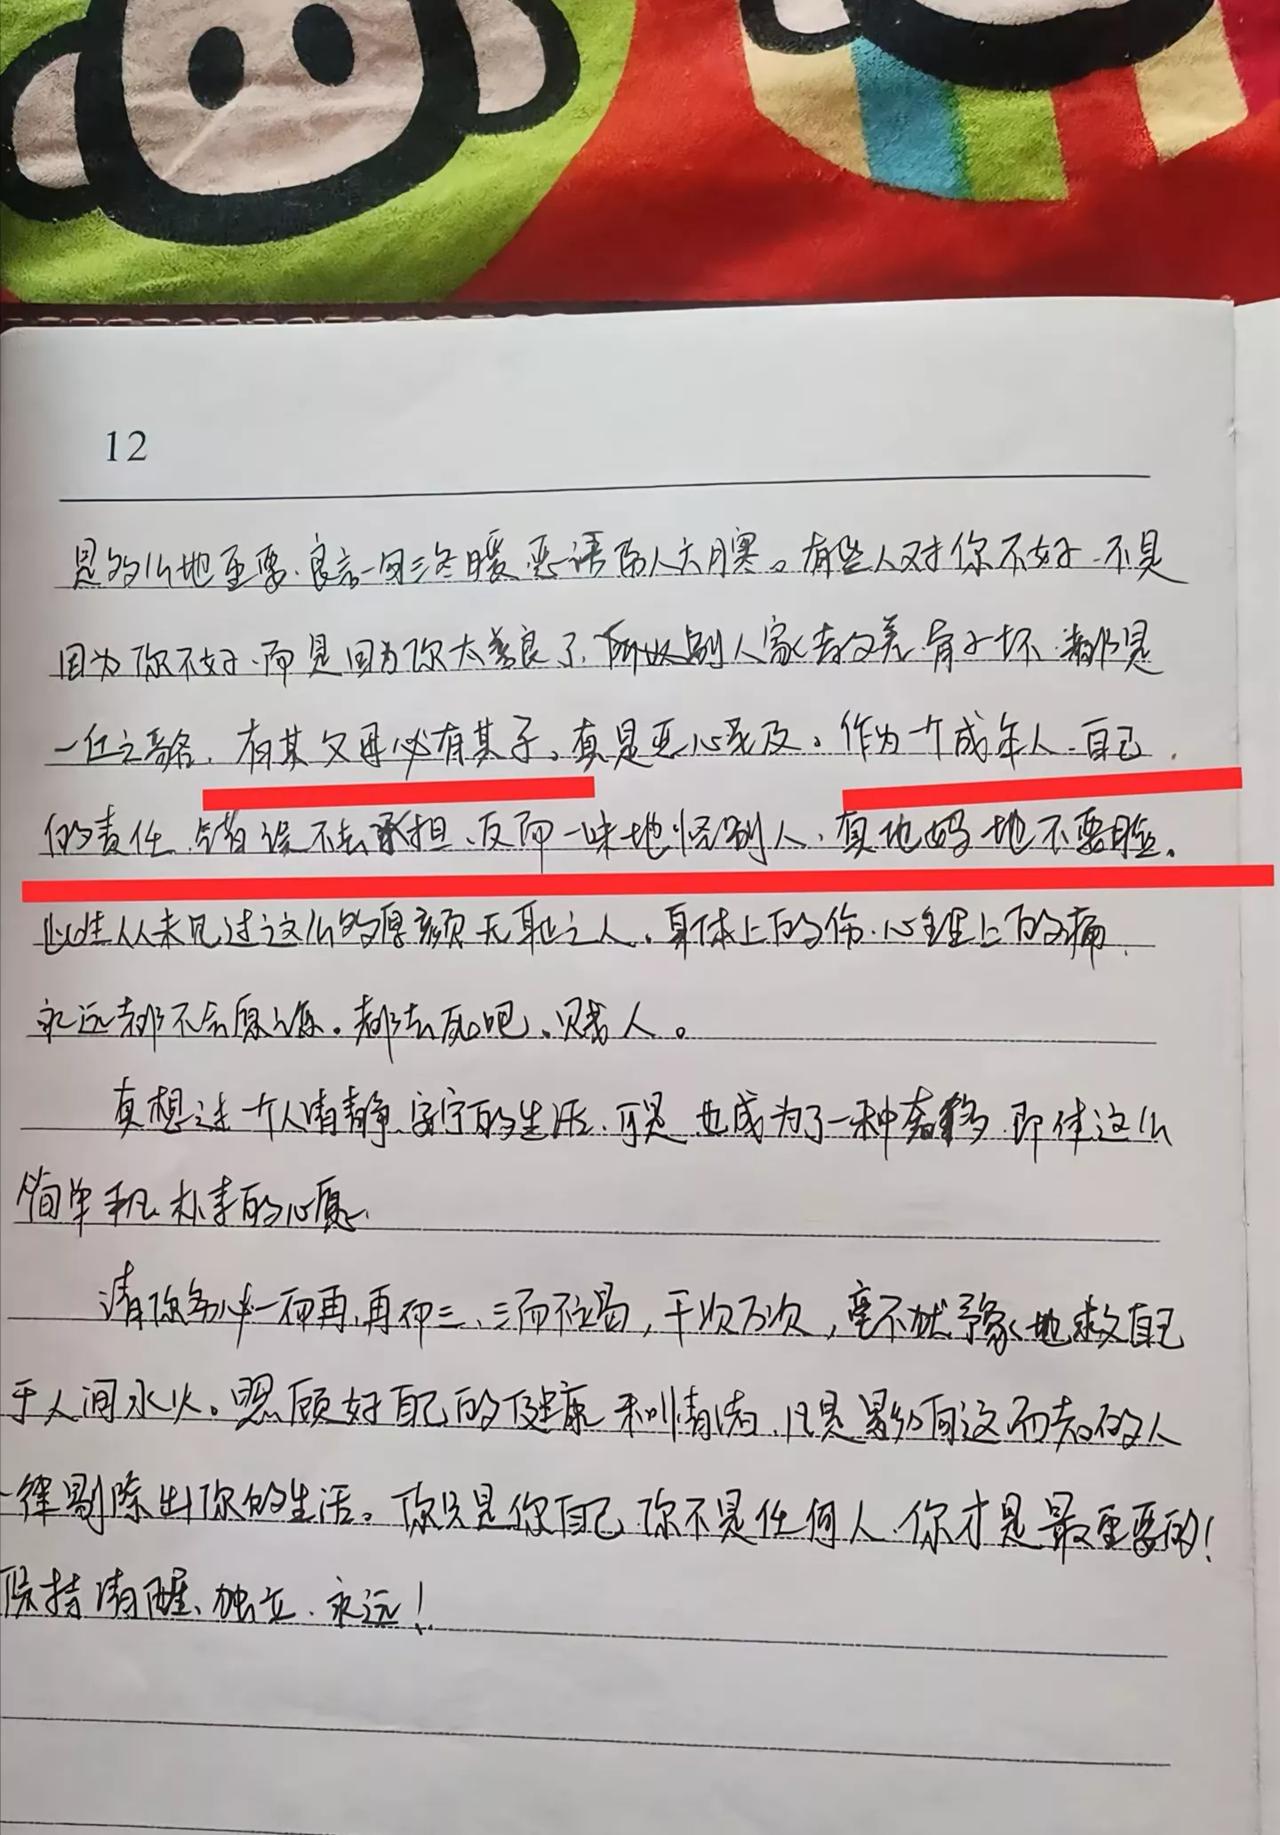 12
是多么地重要、良言一句三冬暖，恶语伤人六月寒。有些人对你不好、不是
因为你不好、而是因为你太善良了，别人家
一丘之貉，有其父母必有其子。真是恶心至极。作为一个成年人、自己
的责任、错误不去承担、反而一味地怪别人、真他妈地不要脸。
此生从未见过这么的厚颜无耻之人。身体上的伤、心理上的痛
永远都不会原谅。都去死吧、贱人。
真想过一个人清静、安宁的生活、可是也成为了一种奢移、即使这么
简单平凡朴素的心愿、
请你务必一而再、再而三、三而不竭，千次万次，毫不犹豫地救自己
于人间水火。照顾好自己的健康和情绪、凡是影响这两者的人
一律剔除出你的生活。你只是你自己、你不是任何人、你才是最重要的！
保持清醒、独立、永远！